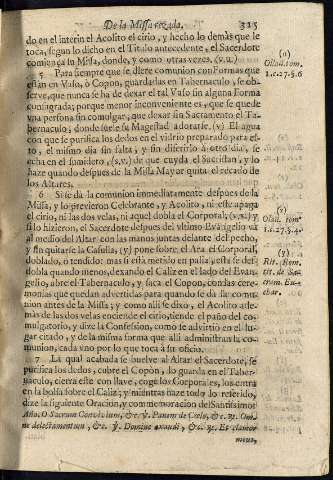 De la Missa rezada. 315
do en el interin el Acolito el cirio, y hecho lo demàs que le
toca, segun lo dicho en el Titulo antecedente, el Sacerdote
comiença la Missa, donde, y como otras vezes. (v.u.)
5 Para siempre que se diere comunion con Formas que
estàn en Vaso, ò Copon, guardadas en Tabernaculo, se ob-
serve, que nunca se ha de dexar el tal Vaso sin alguna Forma
consagrada; porque menor inconveniente es, que se quede
una persona sin comulgar, que dexar sin Sacramento el Ta-
bernaculo, donde suele su Magestad adorarse. (v) El agua
con que se purifica los dedos en el vidrio preparado para es-
to, el mismo dia salta, y sin diferirlo à otro dia, se
echa en el sumidero, (s.v.) de que cuyda el Sacristan, y lo
haze quando despues de la Missa Mayor quita el recado de
los Altares.
6 Si se dà la comunion immediatamente despues de la
Missa, y lo previeron Celebrante, y Acolito, ni este apaga
el cirio, ni las dos velas, ni aquel dobla el Corporal; (v.x.) y
si lo hizieron, el Sacerdote despues del ultimo Evangelio và
al medio del Altar con las manos juntas delante del pecho,
y sin quitarse la Casulla, (y) pone sobre el Ara el Corporal,
doblado, ò tendido: mas si està metido en palia, esta se des-
dobla quando menos, dexando el Caliz en el lado del Evan-
gelio, abre el Tabernaculo, y saca el Copon, con las cere-
monias que quedan advertidas para quando se dà la comu-
nion antes de la Missa; y como alli se dixo, el Acolito ade-
màs de las dos velas enciende el cirio, tiende el paño del co-
mulgatorio, y dize la Confession, como le advirtiò en el lu-
gar citado, y de la misma forma que alli administran la co-
munion, cada uno por lo que toca à su oficio.
7 La qual acabada se buelve al Altar el Sacerdote, se
purifica los dedos, cubre el Copon, lo guarda en el Taber-
naculo, cierra este con llave, coge los Corporales, los entra
en la bolsa sobre el Caliz; y mientras haze todo lo referido,
dize la siguiente Oracion, y commemoracion del Santissimo
Año. O Sacrum Convivium, &c. ℣. Panem de Cælo, &c. ℟. Om-
ne delectamentum, &c. ℣. Domine exaudi, &c. ℟. Et clamor
meus,
(u)
Ollall. tom.
1.c.27.§.6
(x)
Ollall. tom
1.c.27.§.4.
(y)
Rit. Rom.
tit. de Sa-
cram. Eu-
char.